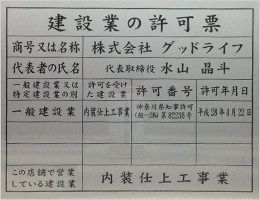 建設業の許可票
商号又は名称 株式会社 グッドライフ
代表者の氏名 代表取締役 水山 晶斗
一般建設業又は特定建設業の別 許可を受けた建設業 許可番号 許可年月日
一般建設業 内装仕上工事業 神奈川県知事許可(般-28)第82236号 平成28年4月22日
この店舗で営業している建設業 内装仕上工事業